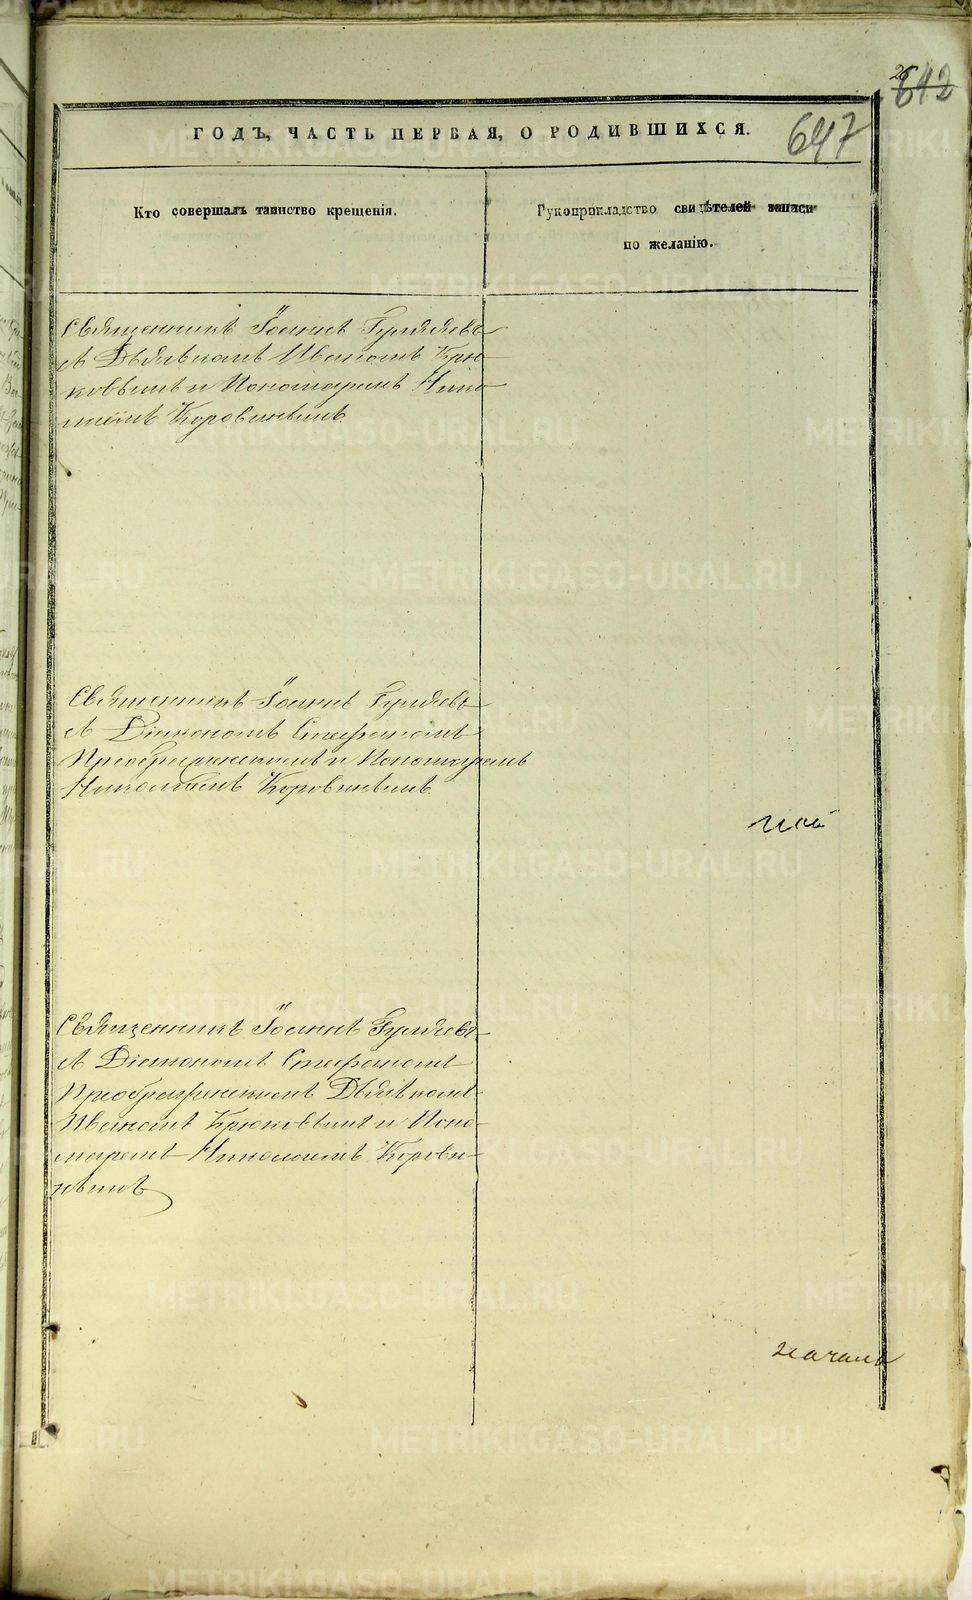 642
647
ГОДЪ, ЧАСТЬ ПЕРВАЯ, О РОДИВШИХСЯ.
Кто совершалъ таинство крещенія.
Рукоприкладство свидѣтелей записи
по желанію.
Священникъ Іоаннъ Гуляевъ
съ Дьячкомъ Иваномъ Крю-
ковымъ и Пономаремъ Нико-
лаемъ Коровинымъ.
Священникъ Іоаннъ Гуляевъ
съ Діакономъ Стефаномъ
Преображенскимъ и Пономаремъ
Николаемъ Коровинымъ.
Священникъ Іоаннъ Гуляевъ
съ Діакономъ Стефаномъ
Преображенскимъ Дьячкомъ
Иваномъ Крюковымъ и Поно-
маремъ Николаемъ Корови-
нымъ
начала
METRIKI.GASO-URAL.RU